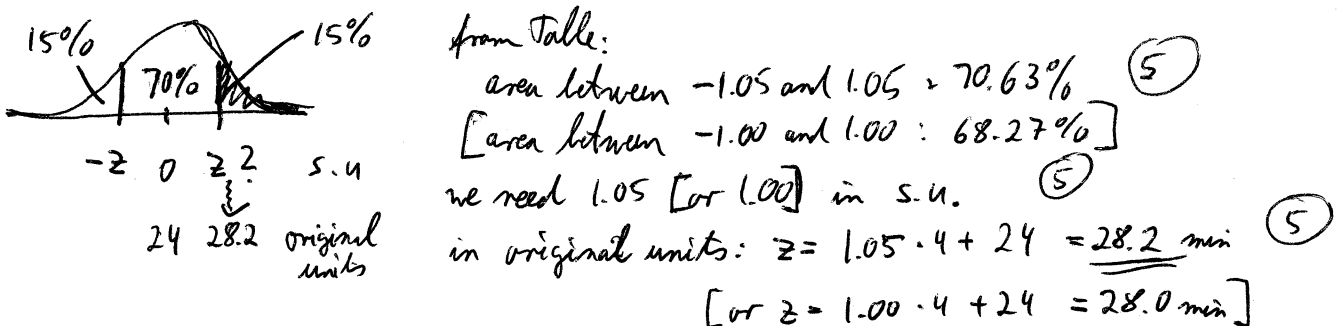 15% 15%
70%
-z 0 z ? s.u
24 28.2 original
units
from Table:
area between -1.05 and 1.05 = 70.63% (5)
[area between -1.00 and 1.00 : 68.27%]
we need 1.05 [or 1.00] in s.u. (5)
in original units: z = 1.05 · 4 + 24 = 28.2 min (5)
[or z = 1.00 · 4 + 24 = 28.0 min]